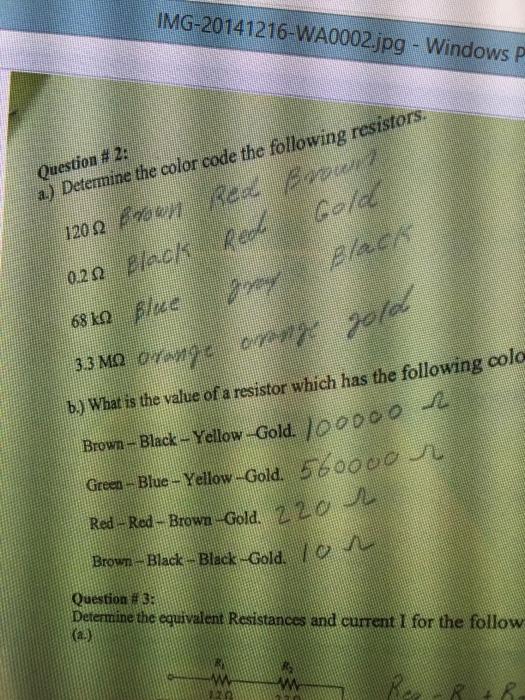 IMG-20141216-WA0002.jpg - Windows P
Question # 2:
a.) Determine the color code the following resistors.
120 Ω Brown Red Brown
0.2 Ω Black Red Gold
68 kΩ Blue gray Black
3.3 MΩ orange orange gold
b.) What is the value of a resistor which has the following colo
Brown – Black – Yellow –Gold. 100000 Ω
Green – Blue – Yellow –Gold. 560000 Ω
Red – Red – Brown –Gold. 220 Ω
Brown – Black – Black –Gold. 10 Ω
Question # 3:
Determine the equivalent Resistances and current I for the follow
(a.)
R₁ R₂
12Ω